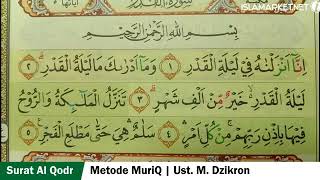 ISLAMARKET.NET
بِسْمِ اللَّهِ الرَّحْمٰنِ الرَّحِيْمِ
اِنَّآ اَنْزَلْنٰهُ فِيْ لَيْلَةِ الْقَدْرِ ١ وَمَآ اَدْرٰىكَ مَا لَيْلَةُ الْقَدْرِ ٢
لَيْلَةُ الْقَدْرِ خَيْرٌ مِّنْ اَلْفِ شَهْرٍ ٣ تَنَزَّلُ الْمَلٰۤىِٕكَةُ وَالرُّوْحُ
فِيْهَا بِاِذْنِ رَبِّهِمْ مِّنْ كُلِّ اَمْرٍ ٤ سَلٰمٌ هِيَ حَتّٰى مَطْلَعِ الْفَجْرِ ٥
Surat Al Qodr Metode MuriQ | Ust. M. Dzikron